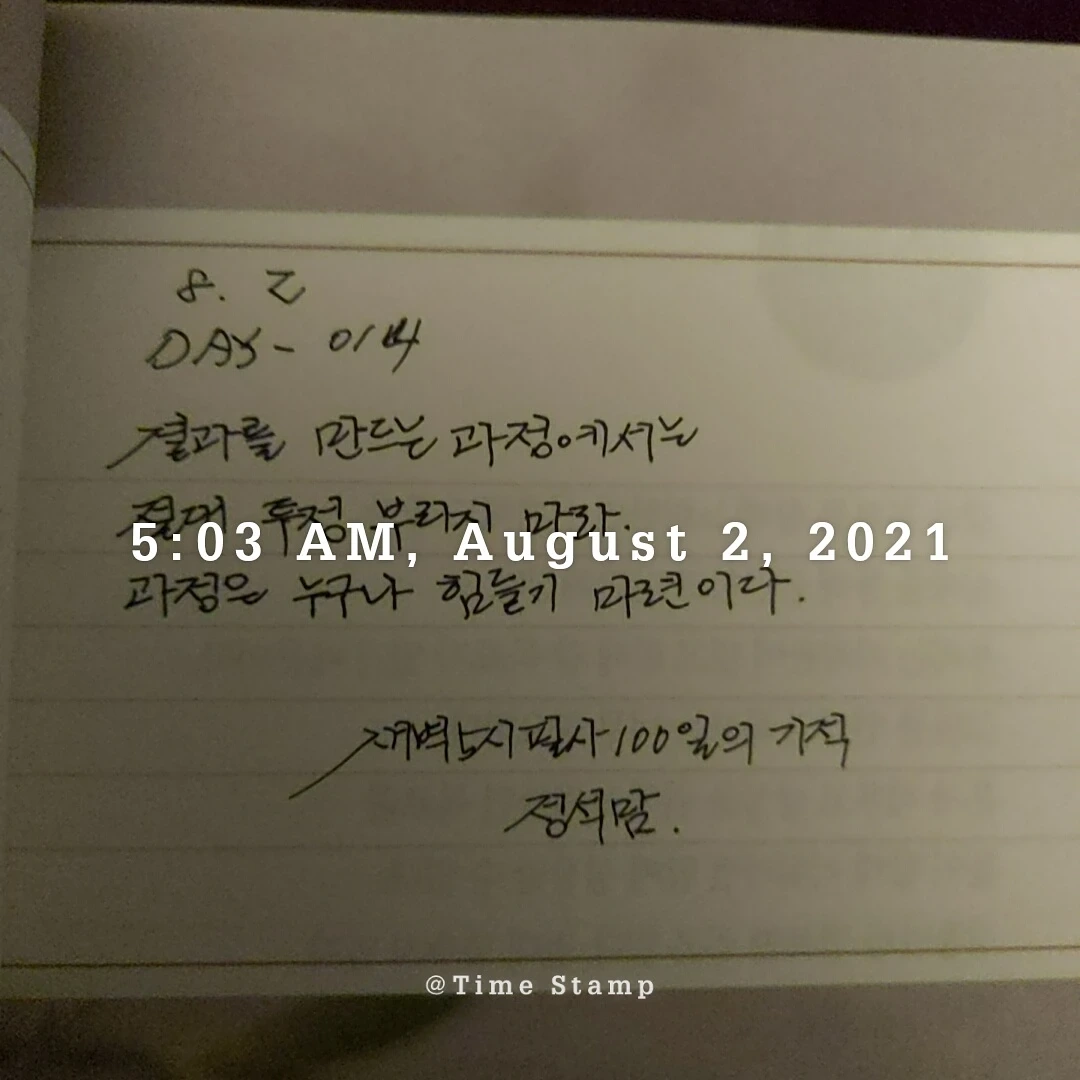 8. 2
DAY - 014
결과를 만드는 과정에서는
절대 투정 부리지 마라.
5:03 AM, August 2, 2021
과정은 누구나 힘들기 마련이다.
새벽5시필사100일의 기적
정석맘.
@Time Stamp